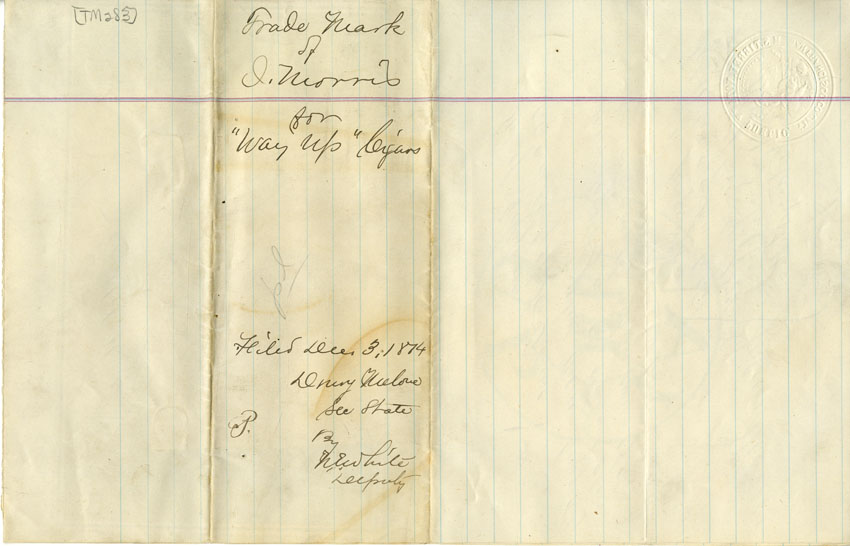 [TM283]
Trade Mark
of
I. Morris
for
"Way Up" Cigars
Pd
Filed Dec. 3, 1874
Drury Melone
Sec State
P.
By
Deputy